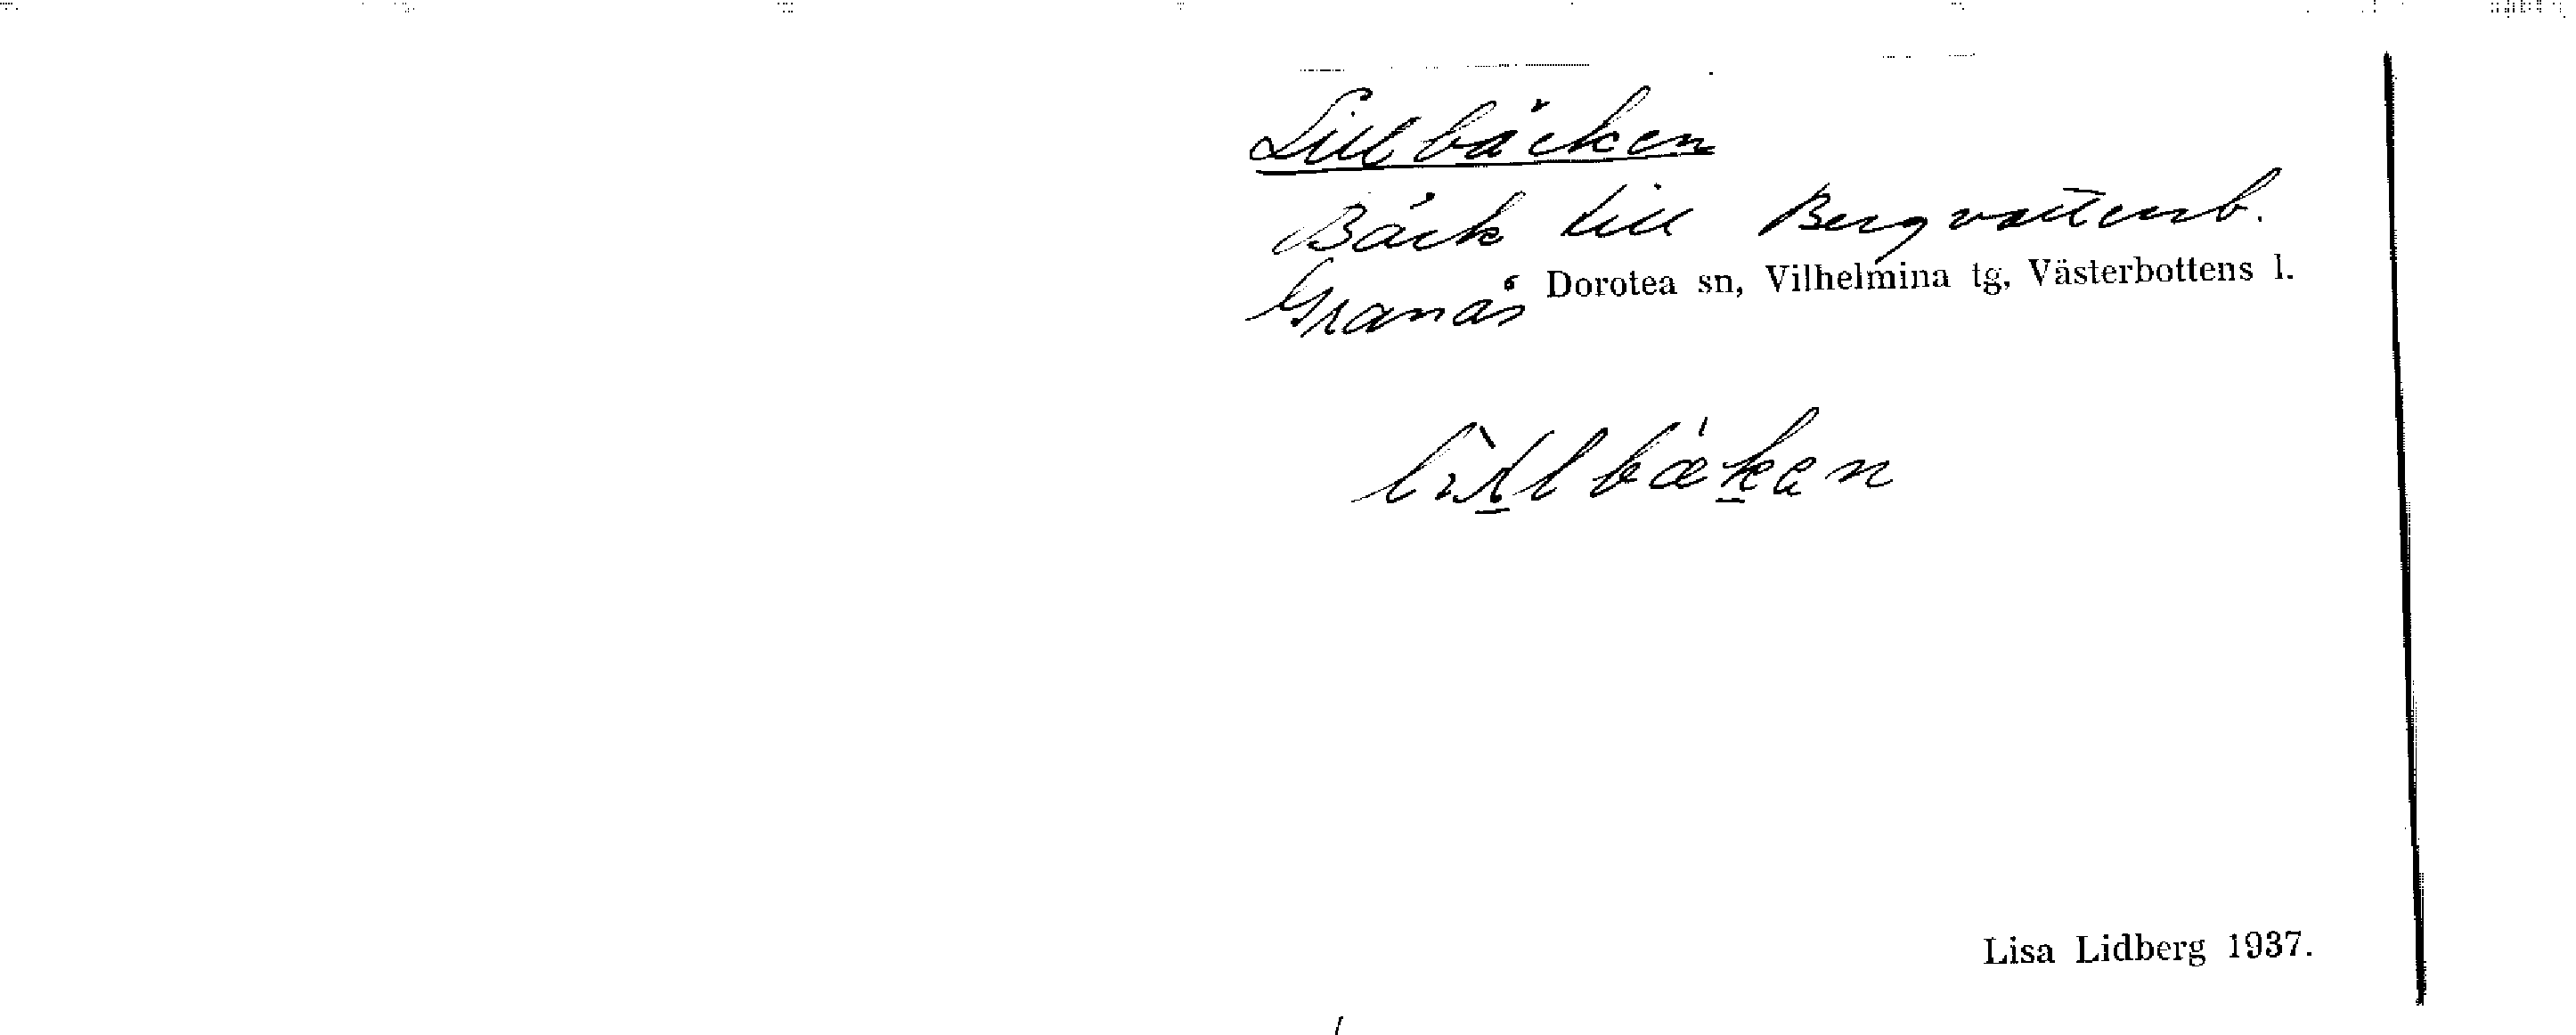 Lillbäcken
Bäck till Bergvattenb.
Granås Dorotea sn, Vilhelmina tg, Västerbottens l.
Lisa Lidberg 1937.